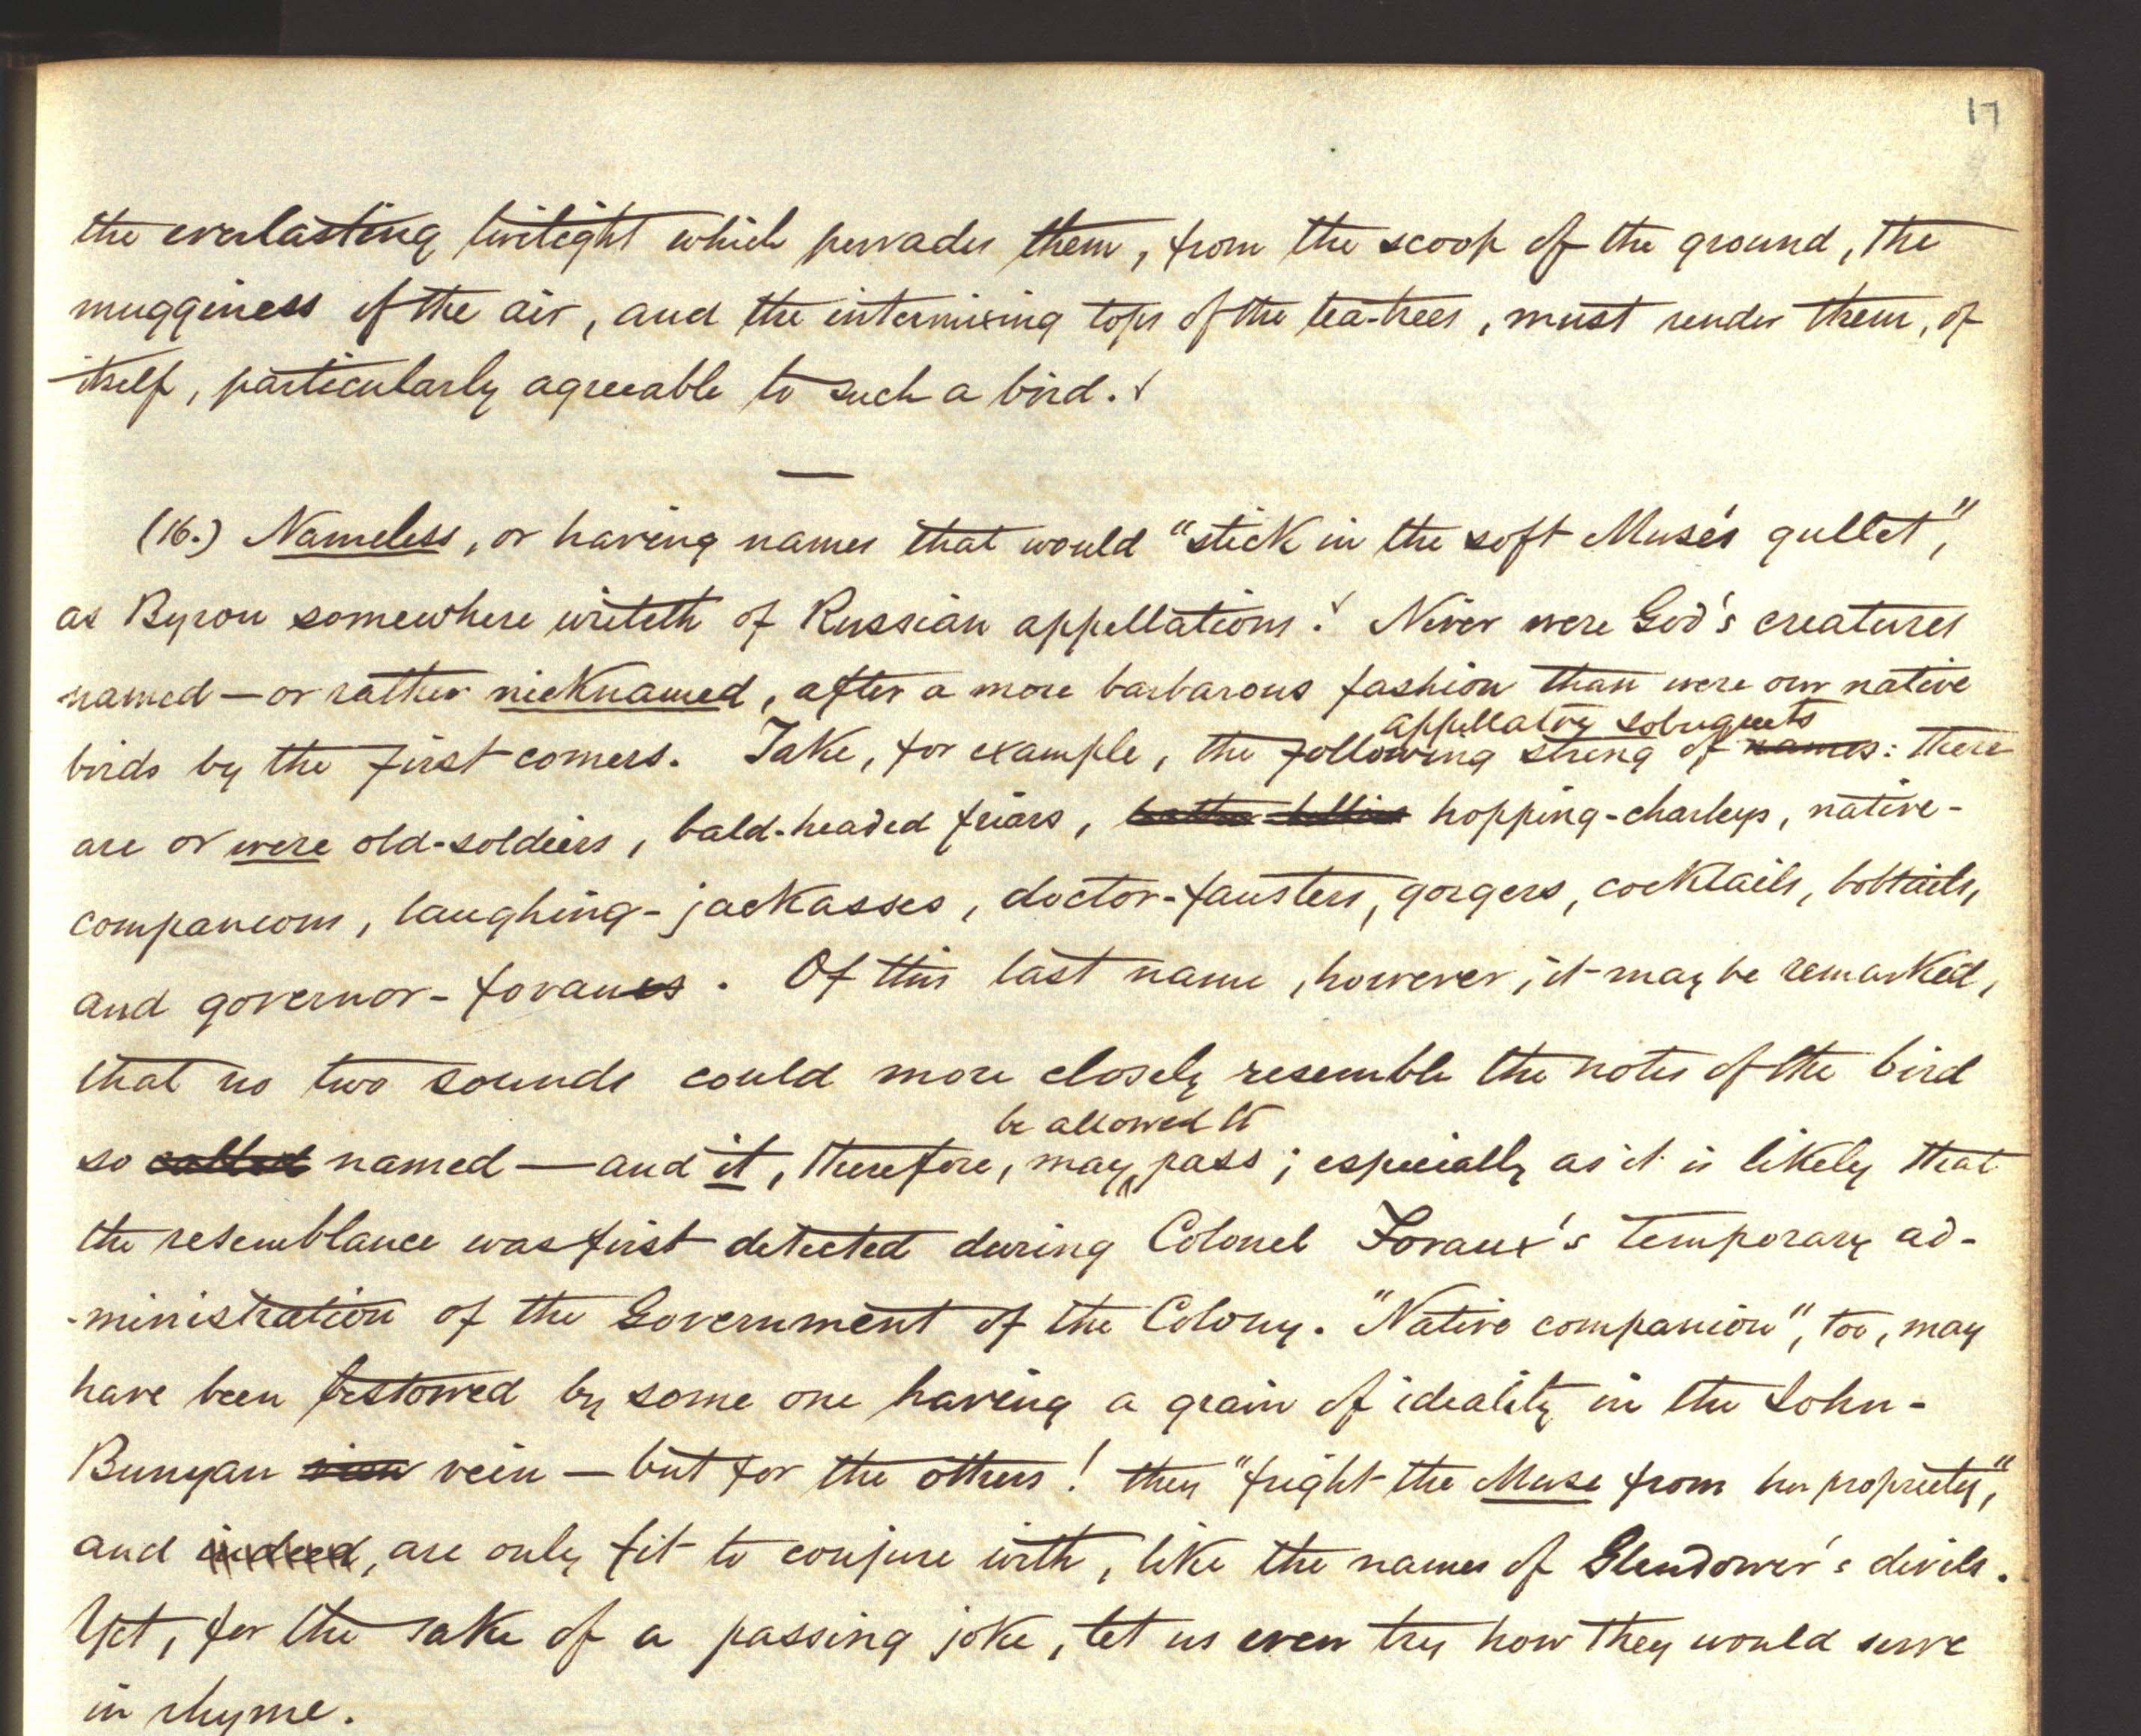 17
the everlasting twilight which pervades them, from the scoop of the ground, the
mugginess of the air, and the intermixing tops of the tea-trees, must render them, of
itself, particularly agreeable to such a bird.
(16.) Nameless, or having names that would "stick in the soft Muse's gullet",
as Byron somewhere writeth of Russian appellations! Never were God's creatures
named — or rather nicknamed, after a more barbarous fashion than were our native
appellatory sobriquets
birds by the first comers. Take, for example, the following string of names: there
are or were old-soldiers, bald-headed friars, hopping-charleys, native-
companions, laughing-jackasses, doctor-fausters, gorgers, cocktails, bobtails,
and governor-fovaues. Of this last name, however, it may be remarked,
that no two sounds could more closely resemble the notes of the bird
be allowed to
so called named — and it, therefore, may pass; especially as it is likely that
the resemblance was first detected during Colonel Fovaux's temporary ad-
-ministration of the Government of the Colony. "Native companion", too, may
have been bestowed by some one having a grain of ideality in the John-
Bunyan vein — but for the others! they "fright the Muse from her propriety",
and indeed, are only fit to conjure with, like the names of Glendower's devils.
Yet, for the sake of a passing joke, let us even try how they would serve
in rhyme.